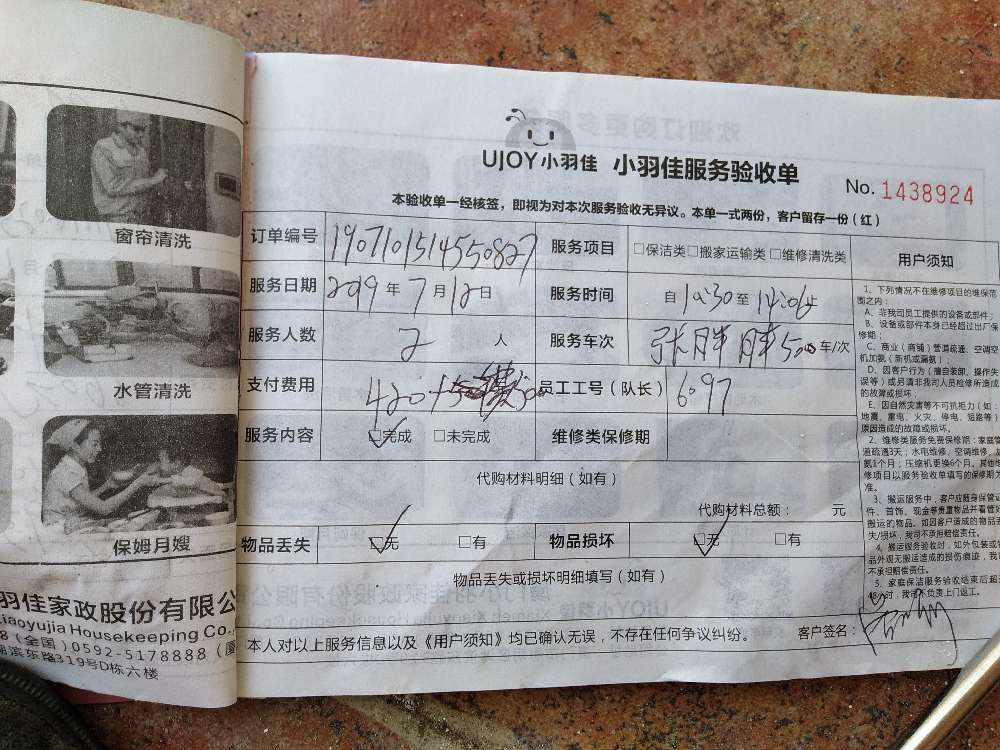 窗帘清洗
水管清洗
保姆月嫂
羽佳家政股份有限公
iaoyujia Housekeeping Co.,
8（全国）0592-5178888（厦
湖滨东路319号D栋六楼
UJOY小羽佳 小羽佳服务验收单
No. 1438924
本验收单一经核签，即视为对本次服务验收无异议。本单一式两份，客户留存一份（红）
订单编号 1907101514550827 服务项目 □保洁类□搬家运输类□维修清洗类
服务日期 2019年7月12日 服务时间 自10:30至14:06止
服务人数 2人 服务车次 张胖胖500车/次
支付费用 420+ 员工工号（队长） 6097
服务内容 □完成 □未完成 维修类保修期
代购材料明细（如有）
代购材料总额： 元
物品丢失 □无 □有 物品损坏 □无 □有
物品丢失或损坏明细填写（如有）
本人对以上服务信息以及《用户须知》均已确认无误，不存在任何争议纠纷。 客户签名：
用户须知
1、下列情况不在维修项目的维保范
围之内：
A、非我司员工提供的设备或部件；
B、设备或部件本身已经超过出厂保
修期；
C、商业（商铺）管道疏通、空调空
机加氨（新机或漏氨）；
D、因客户行为（擅自装卸、操作失
误等）或另请非我司人员检修所造成
的故障或损坏；
E、因自然灾害等不可抗拒力（如：
地震、雷电、火灾、停电、短路等）
原因造成的故障或损坏。
2、维修类服务免费保修期：家庭管
道疏通3天；水电维修、空调维修、加
氨1个月；压缩机更换6个月。其他维
修项目以服务验收单填写的保修期为
准。
3、搬运服务中，客户应随身保管证
件、首饰、现金等贵重物品并看管好
搬运的物品。如因客户造成的物品丢
失/损坏，我司不承担赔偿责任。
4、搬运服务验收时，如外包装或物
品外观无搬运造成的损伤痕迹，我司
不承担赔偿责任。
5、家庭保洁服务验收结束后超过
48小时，我司不负责上门返工。